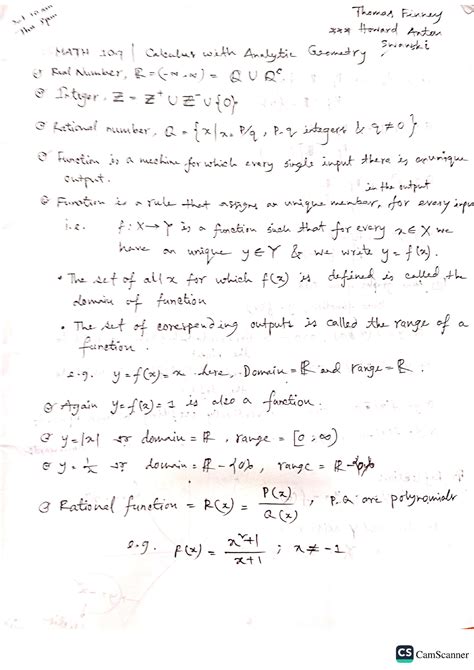 Thomas Finney
xxx Howard Anton
MATH 107 | Calculus with Analytic Geometry
Real Number, R = (-∞, ∞) = Q ∪ Qᶜ
Integer, Z = Z⁺ ∪ Z⁻ ∪ {0}
Rational number, Q = {x | x = P/q, P, q integers & q ≠ 0}
Function is a machine for which every single input there is an unique
output.
in the output
Function is a rule that assigns an unique member, for every input
i.e. f: X → Y is a function such that for every x ∈ X we
have an unique y ∈ Y & we write y = f(x).
• The set of all x for which f(x) is defined is called the
domain of function
• The set of coresponding outputs is called the range of a
function.
e.g. y = f(x) = x here, Domain = R and range = R.
Again y = f(x) = 1 is also a function.
y = |x| domain = R, range = [0, ∞)
y = 1/x domain = R - {0}, range = R - {0}
Rational function = R(x) = P(x)/Q(x), P, Q are polynomials
e.g. f(x) = x²+1/x+1 ; x ≠ -1
CS CamScanner